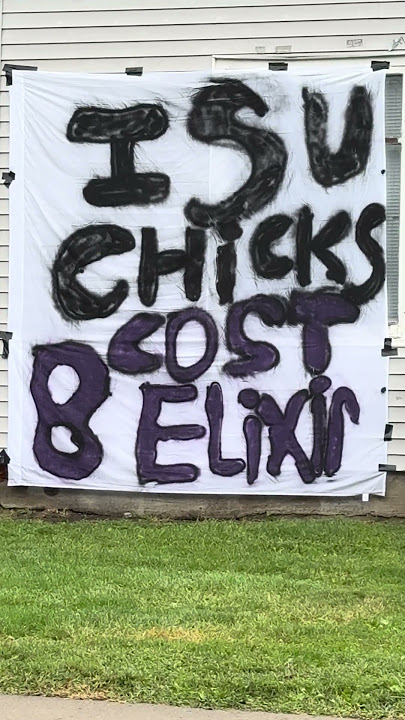 ISU
CHiCKS
COST
8 ELiXir